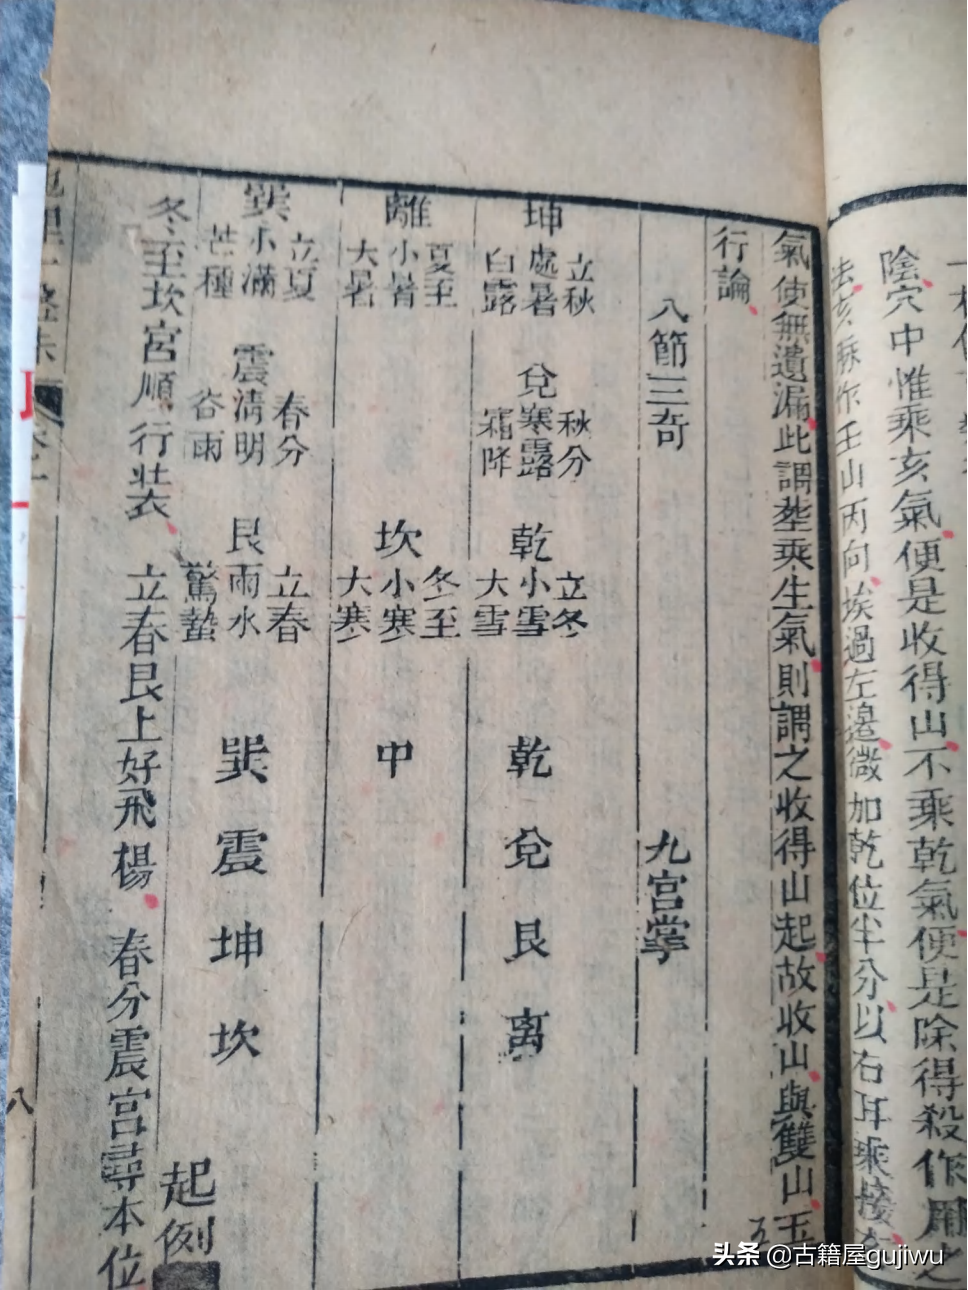 陰穴中惟乘亥氣便是收得山不乘乾氣便是除得殺作用之
壬山丙向埃過左邉微加乾位半分以右耳乘接
氣使無遺漏此謂塟乘生氣則謂之收得山起故收山與雙山五
行論
八節三奇 九宮掌
坤 立秋 處暑 白露 兌 秋分 寒露 霜降 乾 立冬 小雪 大雪 乾 兌 艮 离
離 夏至 小暑 大暑 坎 冬至 小寒 大寒 中
巽 立夏 小滿 芒種 震 春分 清明 谷雨 艮 立春 雨水 驚蟄 巽 震 坤 坎
起例
冬至坎宮順行裝 立春艮上好飛楊 春分震宮尋本位
八
头条 @古籍屋gujiwu